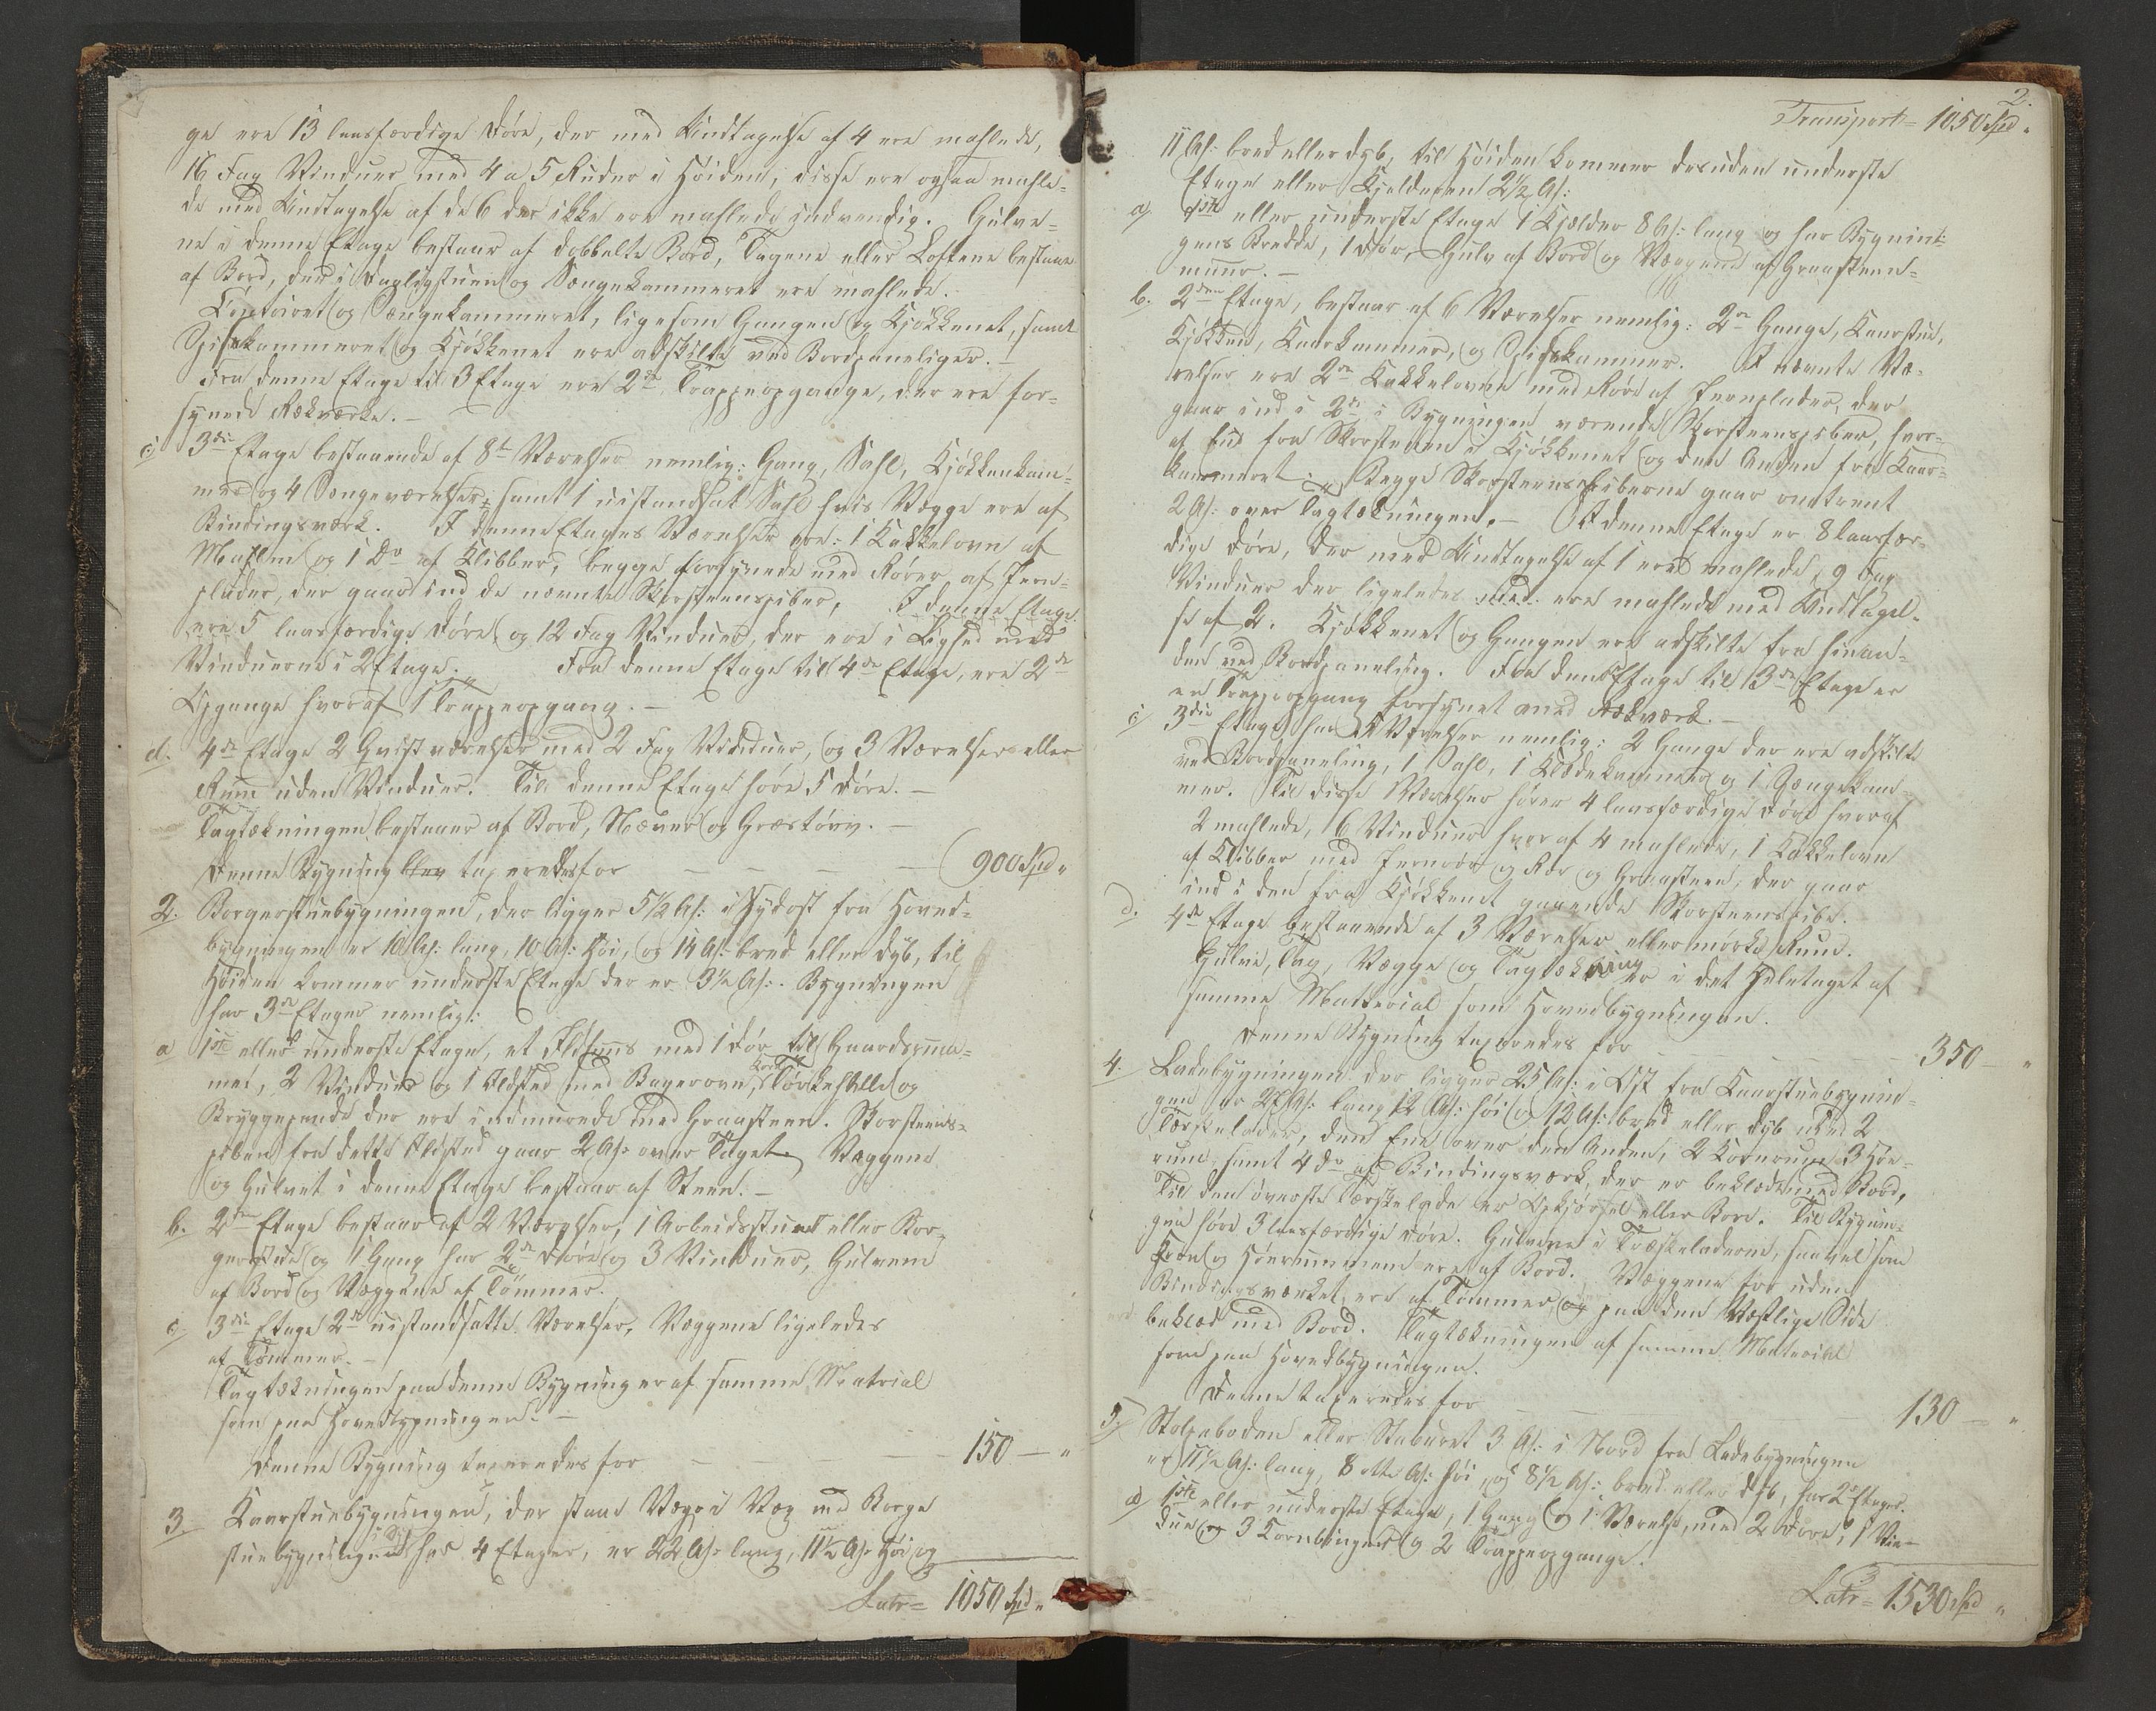 ge ere 13 laasfærdige Døre, der med Undtagelse af 4 ere mahlede,
16 Fag Vinduer med 4 a 5 Ruder i Høiden, disse ere ogsaa mahle-
de med Undtagelse af de 6 der ikke ere mahlede indvendig. Gulve-
ne i denne Etage bestaar af dobbelte Bord, Tagene eller Loftene bestaar
af Bord, der i Dagligstuen og Sængekammeret ere mahlede.
Contoiret og Sængekammeret, ligesom Gangen og Kjøkkenet, samt
Spisekammeret og Kjøkkenet ere adskilte ved Bordpaneliger.
Fra denne Etage til 3 Etage ere 2de Trappeopgange, der ere for-
synede Rækværke.-
c) 3die Etage bestaaende af 8te Værelser nemlig: Gang, Sahl, Kjøkkenkam-
mer og 4 Sængeværelser, samt 1 uistandsat Sahl hvis Vægge ere af
Bindingsværk. I denne Etages Værelser ere: 1 Kakkelovn af
Mahlm og 1 Do af Klibber, begge forsynede med Rører af Jern-
plader, der gaar ind de nævnte Skorsteenspiber, I denne Etage
ere 5 laasfærdige Døre og 12 Fag Vinduer, der ere i Lighed med
Vinduerne i 2 Etage. Fra denne Etage til 4de Etage, ere 2de
Opgange hvoraf 1 Trappeopgang.-
d. 4de Etage 2 Qvistværelser med 2 Fag Vinduer, og 3 Værelser eller
Rum uden Vinduer. Til denne Etage høre 5 Døre.-
Tagtækningen bestaaer af Bord, Næver og Græstørv.-
Denne Bygning blev taxeredes for - - - - 900 Spd "
2. Borgerstuebygningen, der ligger 5½ Al: i Sydost fra Hoved-
bygningen er 18 Al: lang, 10 Al: Høi, og 14 Al: bred eller dyb, til
Høiden kommer underste Etage der er 3½ Al: . Bygningen
har 3de Etager nemlig:
a 1ste eller underste Etage, et Ildhuus med 1 Dør til Gaardsrum-
met, 2 Vinduer og 1 Ildsted med Bagerovn, Korn Tørkehelle og
Bryggepande der ere indmurede med Graasteen. Skorsteens-
piben fra dette Ildsted gaar 2 Al: over Taget. Væggene
og Gulvet i denne Etage bestaar af Steen.-
b. 2den Etage bestaar af 2 Værelser, 1 Arbeidsstue eller Bor-
gerstue og 1 Gang har 2de Døre og 3 Vinduer, Gulvene
af Bord og Væggene af Tømmer.
c. 3die Etage 2de uistandsatte Værelser, Væggene ligeledes
af Tømmer.-
Tagtækningen paa denne Bygning er af samme Matrial
som paa Hovedbygningen.-
Denne Bygning taxeredes for - - - - 150 - "
3. Kaarstuebygningen, der staar Væg i Væg med Borge
stuebygningen har 4 Etager, er 22 Al: lang, 11½ Al: Høi og
Latr= 1050 Spd "
2.
Transport= 1050 Spd "
11 Al: bred eller dyb, til Høiden kommer desuden underste
Etage eller Kjelderen 2½ Al:
a) 1ste eller underste Etage 1 Kjelder 8 Al: lang og har Bygnin-
gens Bredde, 1 Dør, Gulv af Bord og Væggene af Graasteen-
muur.-
b. 2den Etage, bestaar af 6 Værelser nemlig: 2de Gange, Kaarstue,
Kjøkken, Kaarkammer, og Spisekammer. I nævnte Væ-
relser ere 2de Kakkelovne med Rør af Jernplader, der
gaar ind i 2de i Bygningen værende Skorsteenspiber, hvor-
af Een fra Skorstenen i Kjøkkenet og den Anden fra Kaar-
kammeret. Begge Skorsteenspiberne gaar omtrent
2 Al: over Tagtækningen.- I denne Etage er 8 laasfær-
dige Døre, der med Undtagelse af 1 ere mahlede, 9 Fag
Vinduer der ligeledes ere mahlede med Undtagel-
se af 2. Kjøkkenet og Gangen ere adskilte fra hinan-
den ved Bordpaneling. Fra den Etage til 3die Etage er
en Trappeopgang forsynet med Rækværk.-
c) 3die Etage har 5 Værelser nemlig: 2 Gange der ere adskilt
ved Bordpaneling, 1 Sahl, 1 Klædekammer og 1 Sængekam-
mer. Til disse Værelser hører 4 laasfærdige Døre hvoraf
2 mahlede, 6 Vinduer hvoraf 4 mahlede, 1 Kakkelovn
af Klibber med og Rør og Graasteen, der gaar
ind i den fra Kjøkkenet gaaende Skorsteenspibe.
d. 4de Etage bestaaende af 3 Værelser eller mørke Rum.
Gulve, Tag, Vægge og Tagtækning er i det Heletaget af
samme Matterial som Hovedbygningen.
Denne Bygning taxeredes for - - - - 350 - "
4. Ladebygningen der ligger 25 Al: i Øst fra Kaarstuebygnin-
gen er Al: lang 12 Al: høi og 12 Al: bred eller dyb med 2
Tærskelader, den Ene over den Anden, 2 Kornrum 3 Høe-
rum samt 4 Do af Bindingsværk, der er beklædt med Bord,
Til den øverste Tærskelade er Opkjørsel eller Broe. Til Bygnin-
gen høre 3 laasfærdige Døre. Gulvene i Træskeladerne, saavel som
Korn og Høerummene ere af Bord. Væggene for uden
Bindingsværket ere af Tømmer og paa den Vestlige Side
beklæd med Bord. Tagtækningen af samme Material
som paa Hovedbygningen.
Denne taxeredes for - - - - 130 - "
5. Stolpeboden eller Staburet 3 Al: i Nord fra Ladebygningen
er 11½ Al: lang, 8 otte Al: høi, og 8½ Al: bred eller dyb, har 2 Etager.
a) 1ste eller underste Etage, 1 Gang og 1 Værelse, med 2 Døre, 1 Vin-
due og 3 Kornbinger og 2 Trappeopgange.
Latr= 1530 Spd "